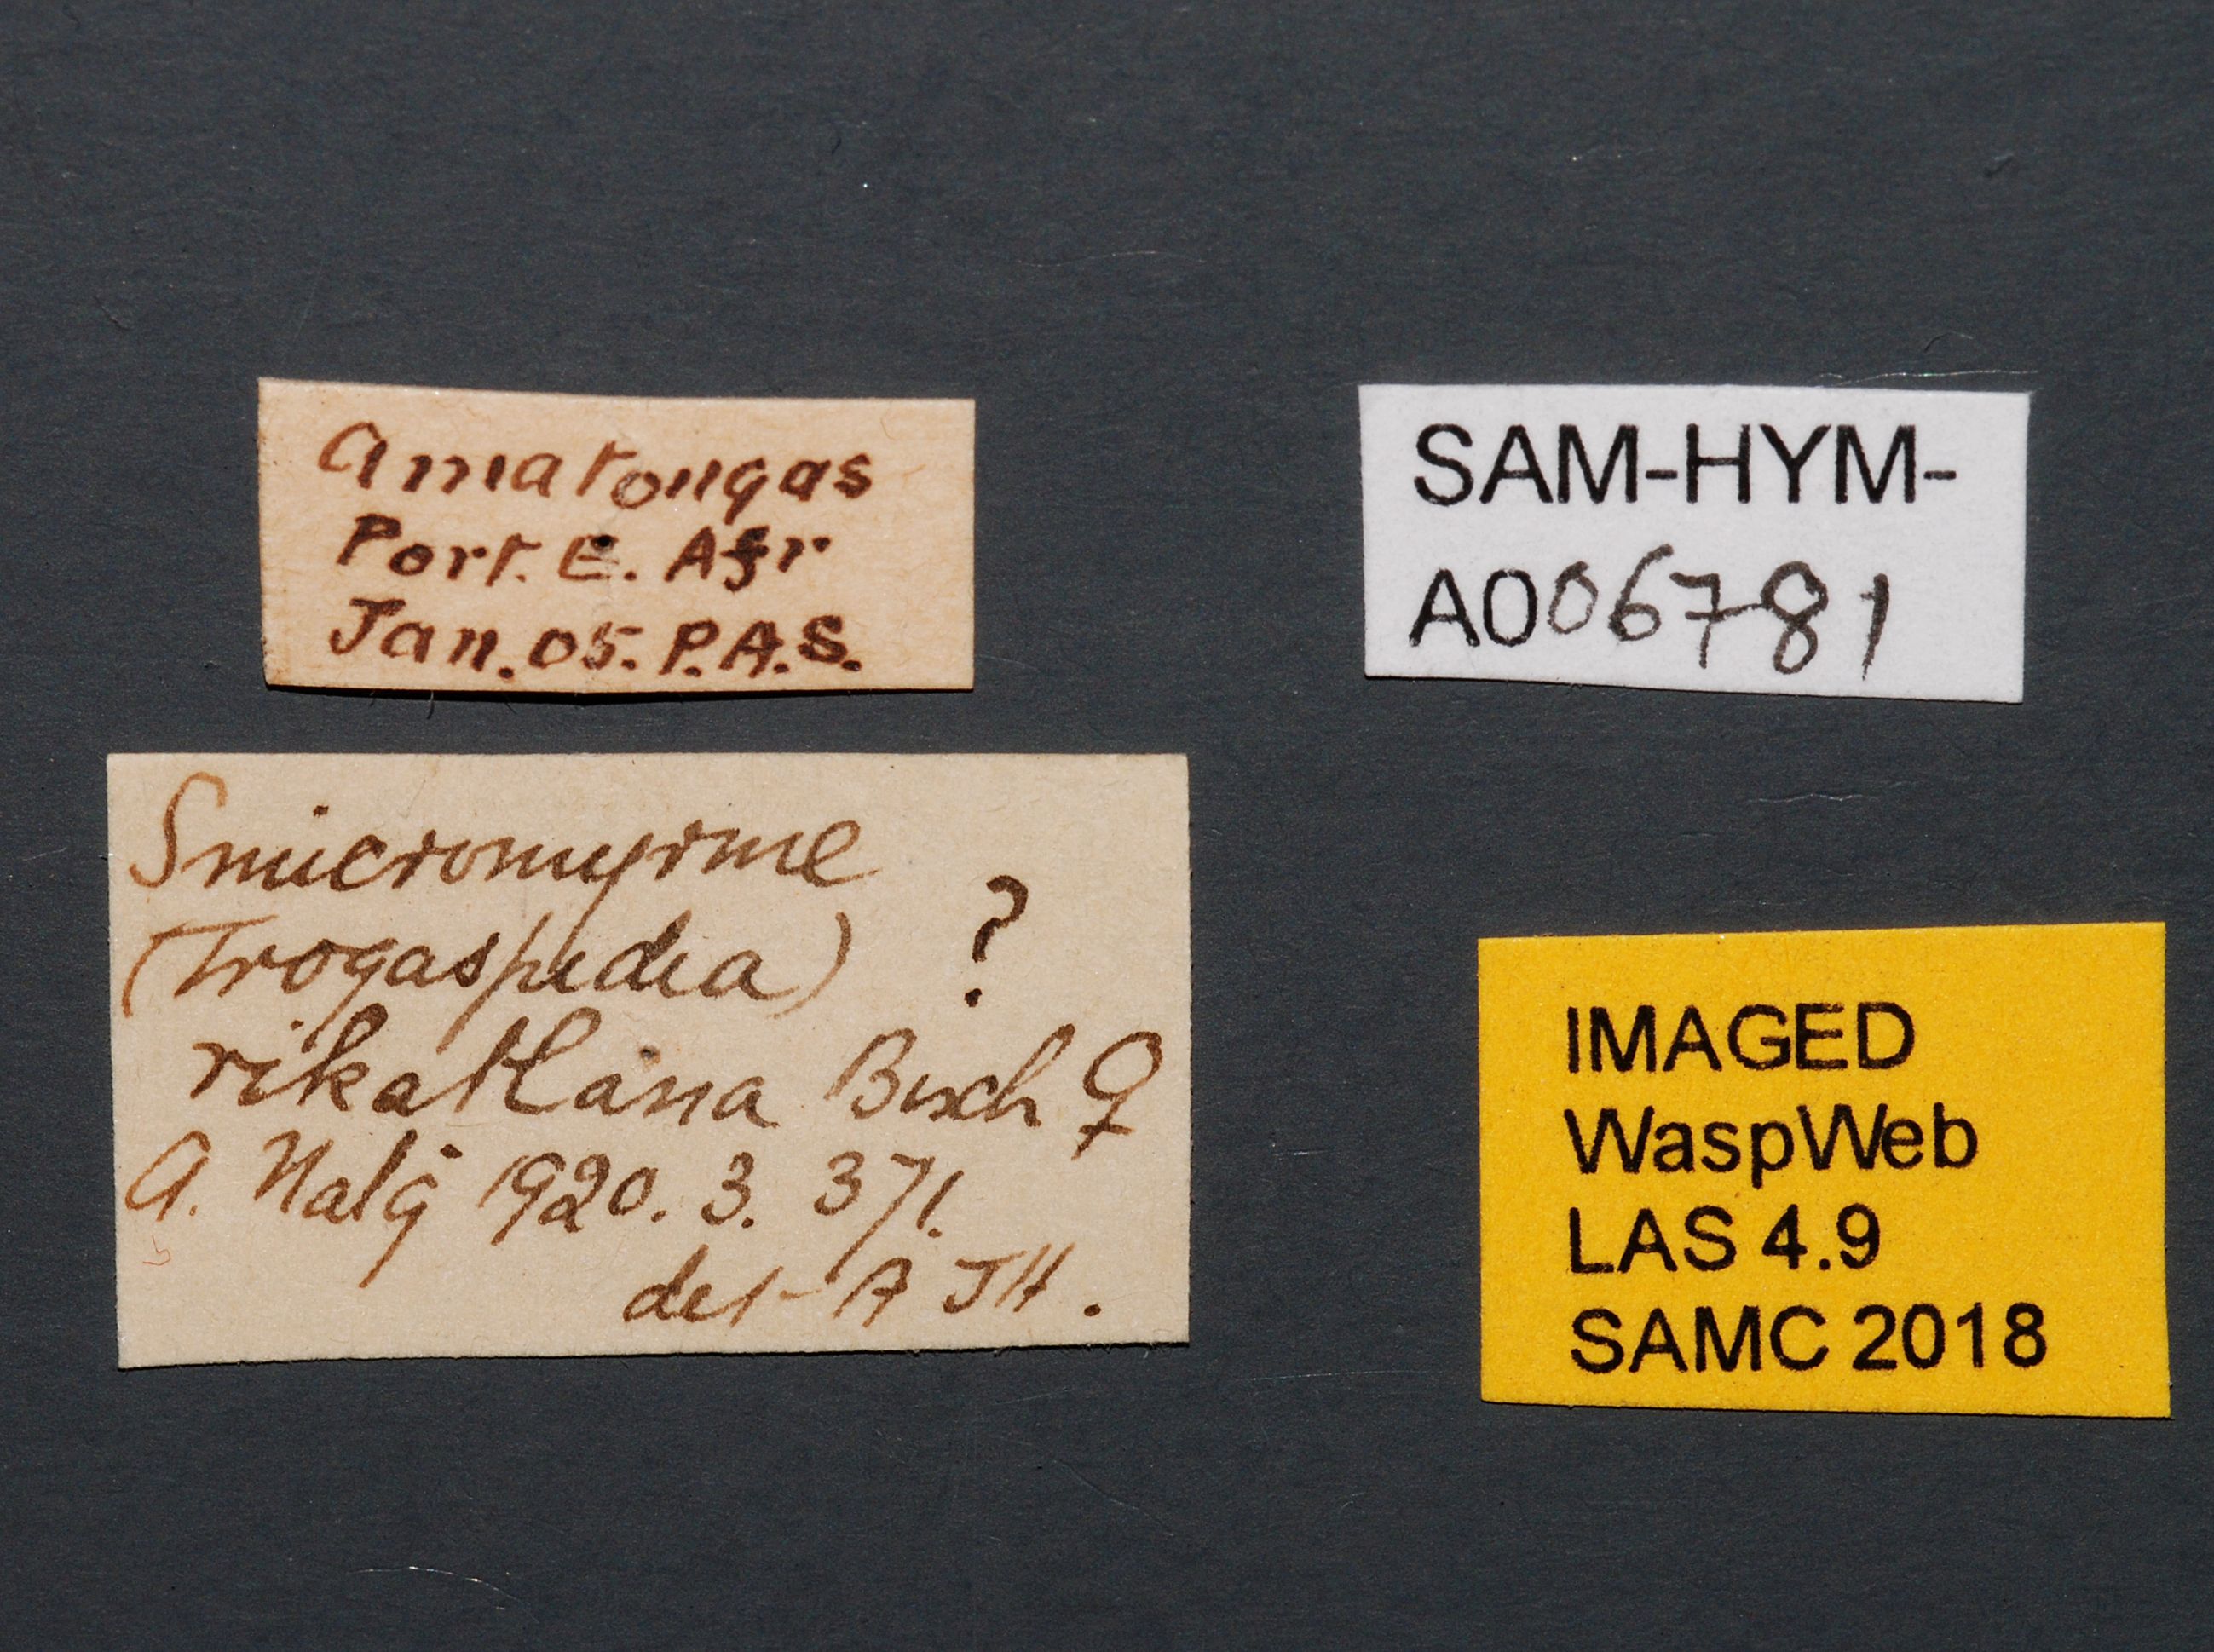 Amatongas
Port. E. Afr
Jan. 05. P.A.S.
SAM-HYM-
A006781
Smicromyrme
(Trogaspidia) ?
rikatlana Bisch ♀
A. Natg 1920. 3. 371.
det A JH.
IMAGED
WaspWeb
LAS 4.9
SAMC 2018